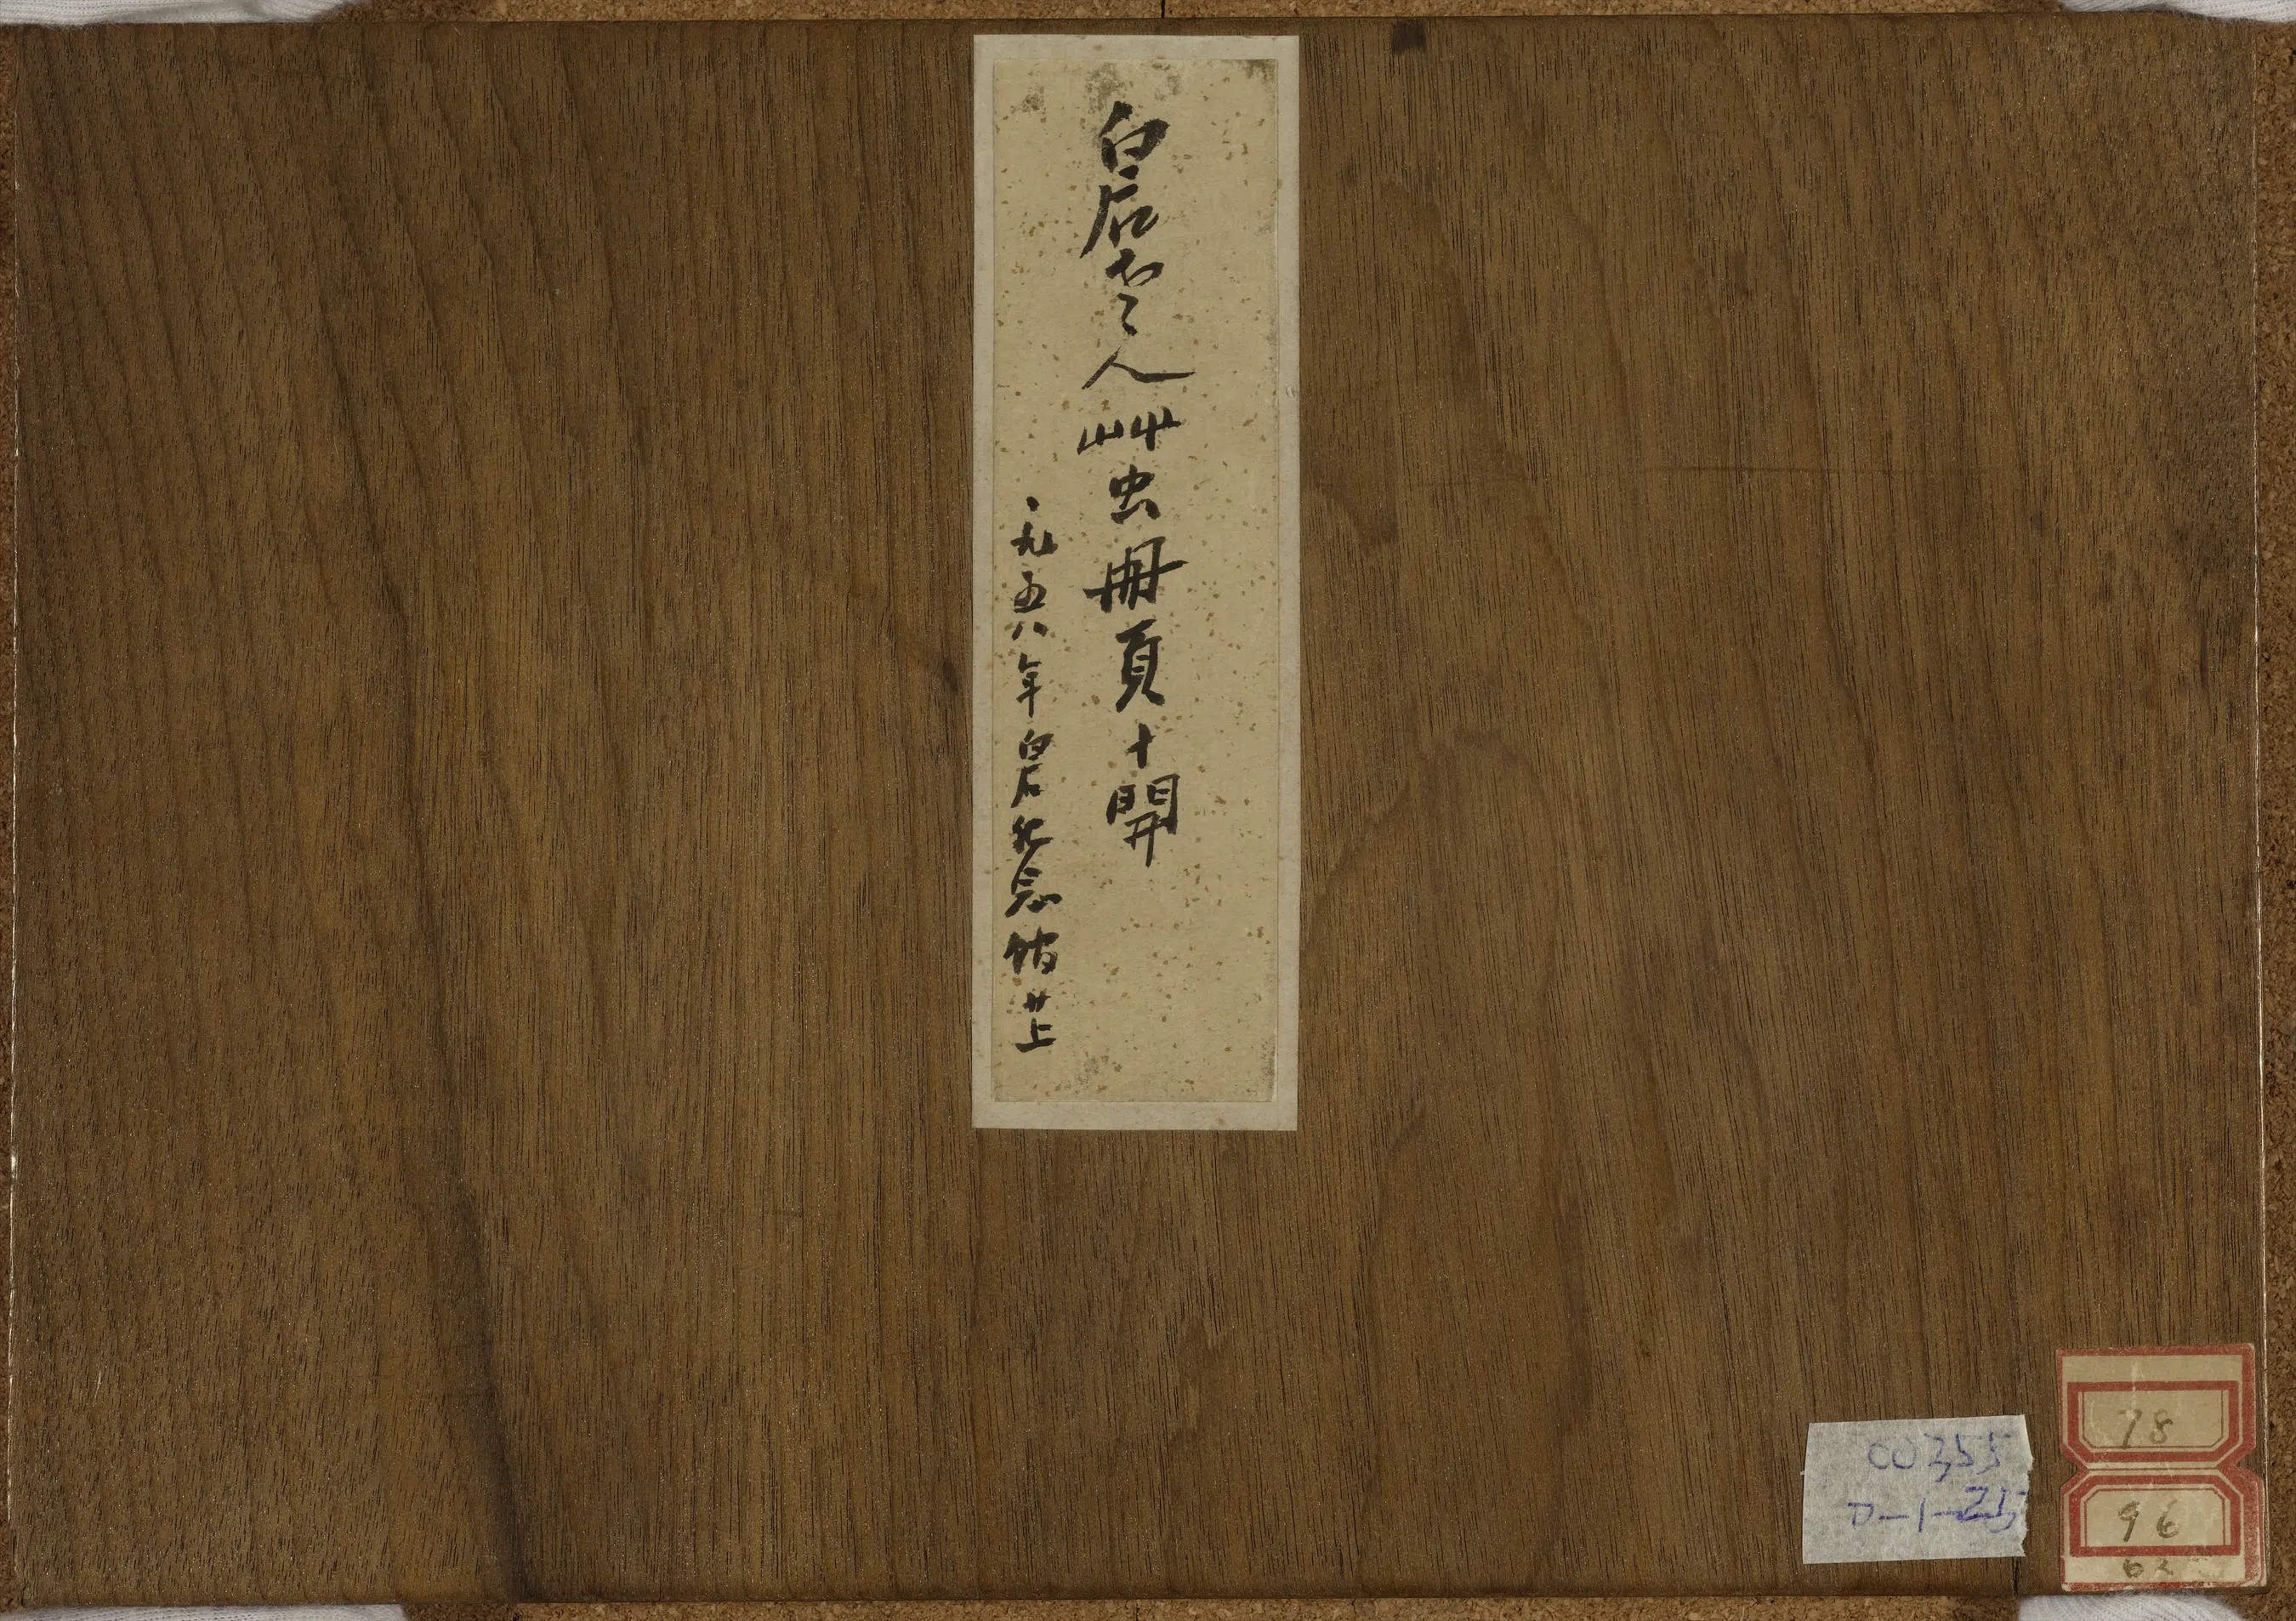 白石老人艸虫冊頁十開
一九五八年白石紀念館廿上
00355
D-1-25
78
96
62